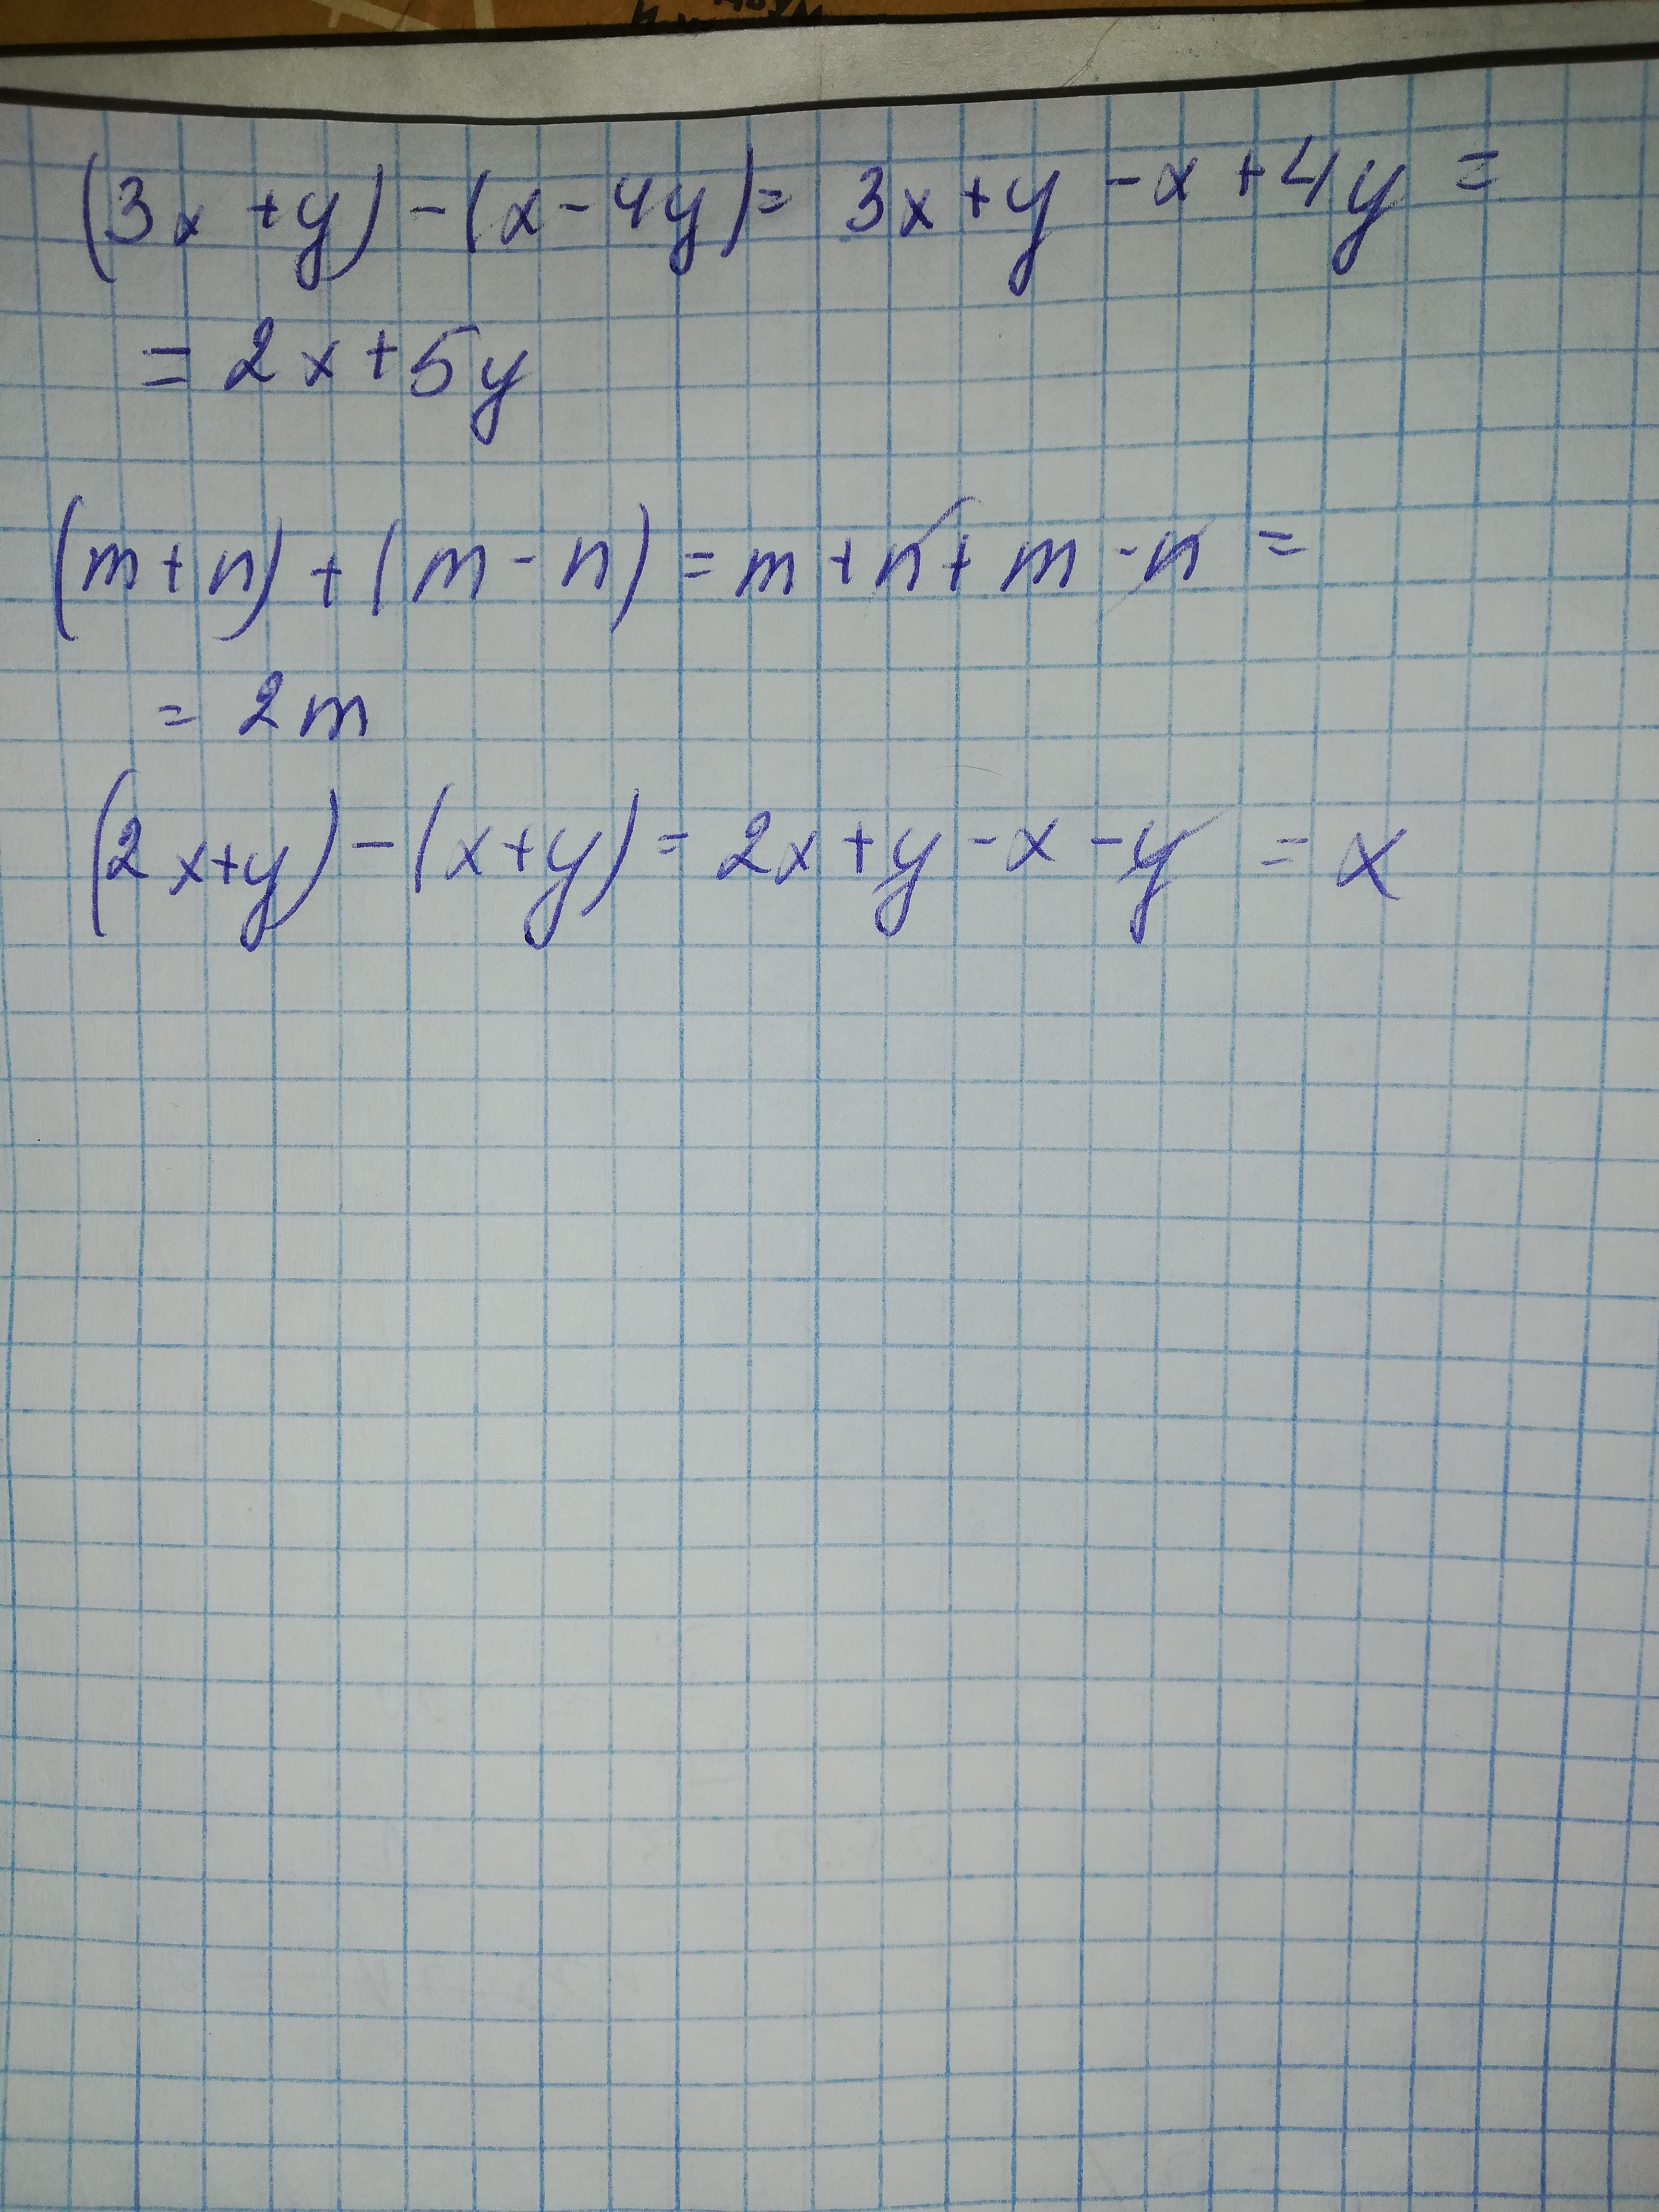 (3x+y)-(x-4y)= 3x+y-x+4y=
= 2x+5y
(m+n)+(m-n)=m+n+m-n=
= 2m
(2x+y)-(x+y)=2x+y-x-y=x